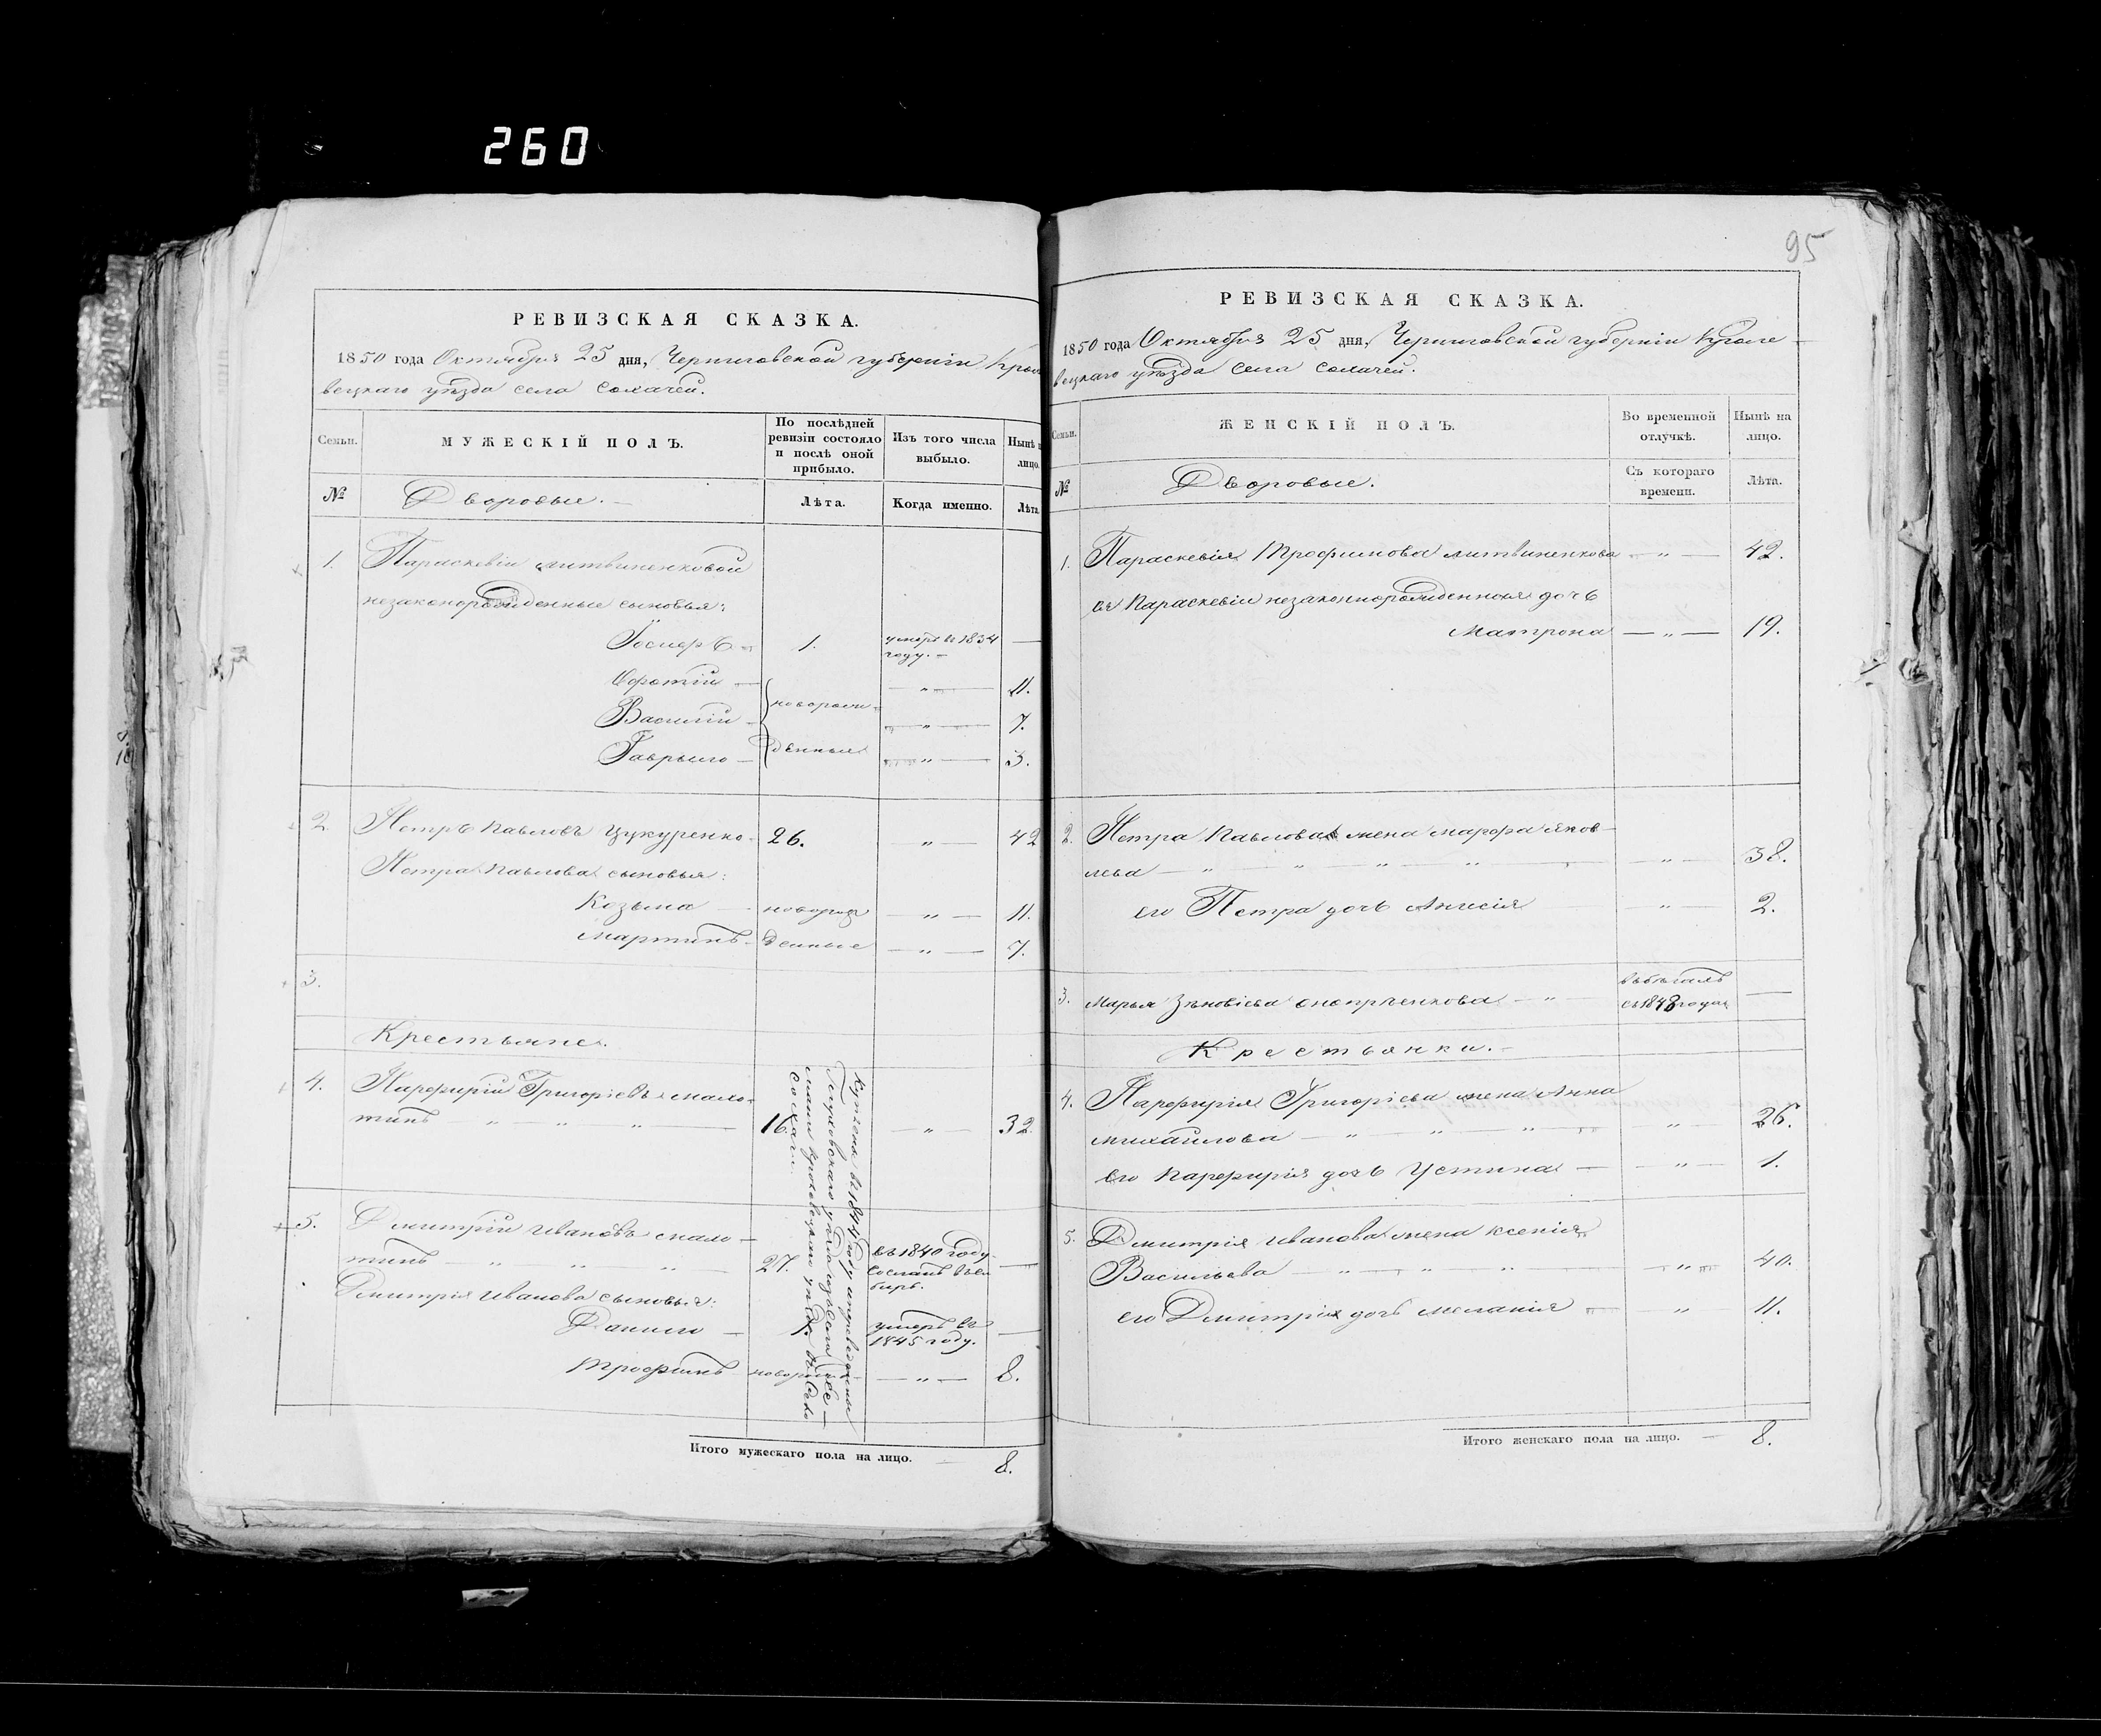 260
РЕВИЗСКАЯ СКАЗКА.
1850 года Октября 25 дня, Черниговской губернии
вецкаго уѣзда села
Семьи.
МУЖЕСКІЙ ПОЛЪ.
По послѣдней ревизіи состояло и послѣ оной прибыло.
Изъ того числа выбыло.
Нынѣ лицо.
№
Дворовые.
Лѣта.
Когда именно.
Лѣта
1. Параскевіи Литвиненковой
незаконорожденные сыновья:
1. умеръ въ 1834
году.
11.
новорож
Василій 7.
Гаврыло денные 3.
2. Петръ Павловъ Цукуренко 26. " 42
Петра Павлова сыновья:
Козьма новорож " 11.
Мартинъ денные " 7.
3.
Крестьяне.
4. Парфирій Григорьевъ
тинъ " " " 16. " 32
Куплен въ 1844 году и переведены
Глуховскаго уѣзда изъ села
Кролевецкаго уѣзда въ село
5. Дмитрій Ивановъ
тинъ " " " 27. въ 1840 году
сосланъ въ си
бирь.
Дмитрія Иванова сыновья:
Данило 1. умеръ въ
1845 году.
Трофимъ новорож " 8.
Итого мужескаго пола на лицо. 8.
95
РЕВИЗСКАЯ СКАЗКА.
1850 года Октября 25 дня, Черниговской губерніи Кроле
вецкаго уѣзда села
Семьи.
ЖЕНСКІЙ ПОЛЪ.
Во временной отлучкѣ.
Нынѣ на лицо.
№
Дворовые.
Съ котораго времени.
Лѣта.
1. Параскевія Трофимова Литвиненкова " 42.
ея Параскевіи незаконнорожденная дочь
Матрона " 19.
2. Петра Павлова жена Марфа Яков
лева " " " " " 38.
его Петра дочь Анисія " 2.
3. Марья Зѣновіева "
съ 1848 года
Крестьянки.
4. Парфирія Григорьева жена Анна
Михайлова " " " " 26.
его Парфирія дочь Устина " 1.
5. Дмитрія Иванова жена Ксенія
Васильева " " " " 40.
его Дмитрія дочь Меланія " 11.
Итого женскаго пола на лицо. 8.